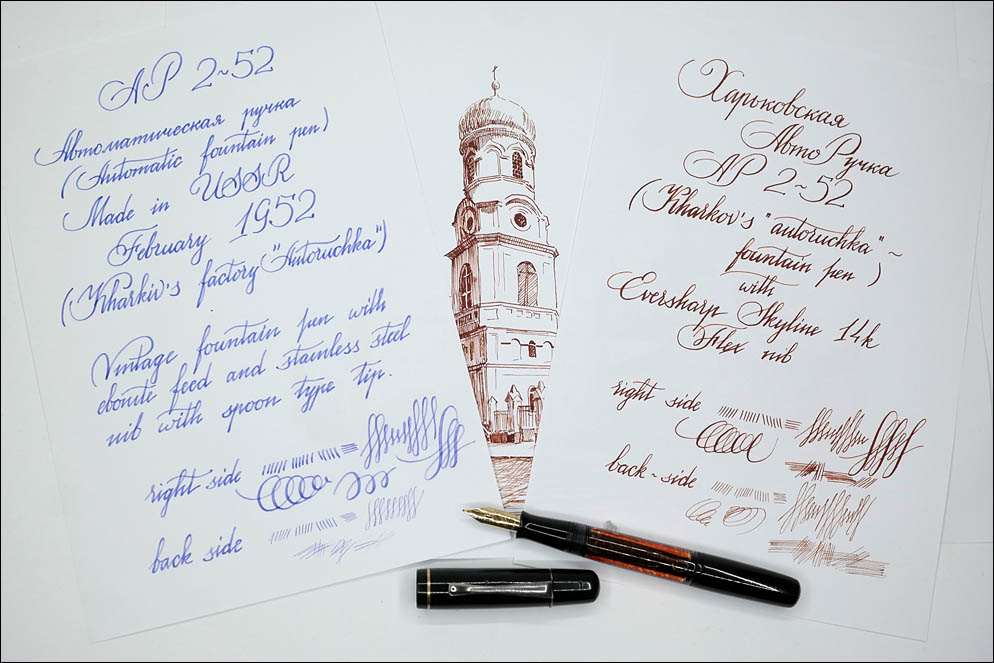 АР 2~52
Автоматическая ручка
(Automatic fountain pen)
Made in USSR
February 1952
(Kharkiv's factory "Autoruchka")
Vintage fountain pen with
ebonite feed and stainless steel
nib with spoon type tip.
right side
back side
Харьковская
АвтоРучка
АР 2~52
(Kharkov's "autoruchka"~
fountain pen)
with
Eversharp Skyline 14k
Flex nib
right side
back~side